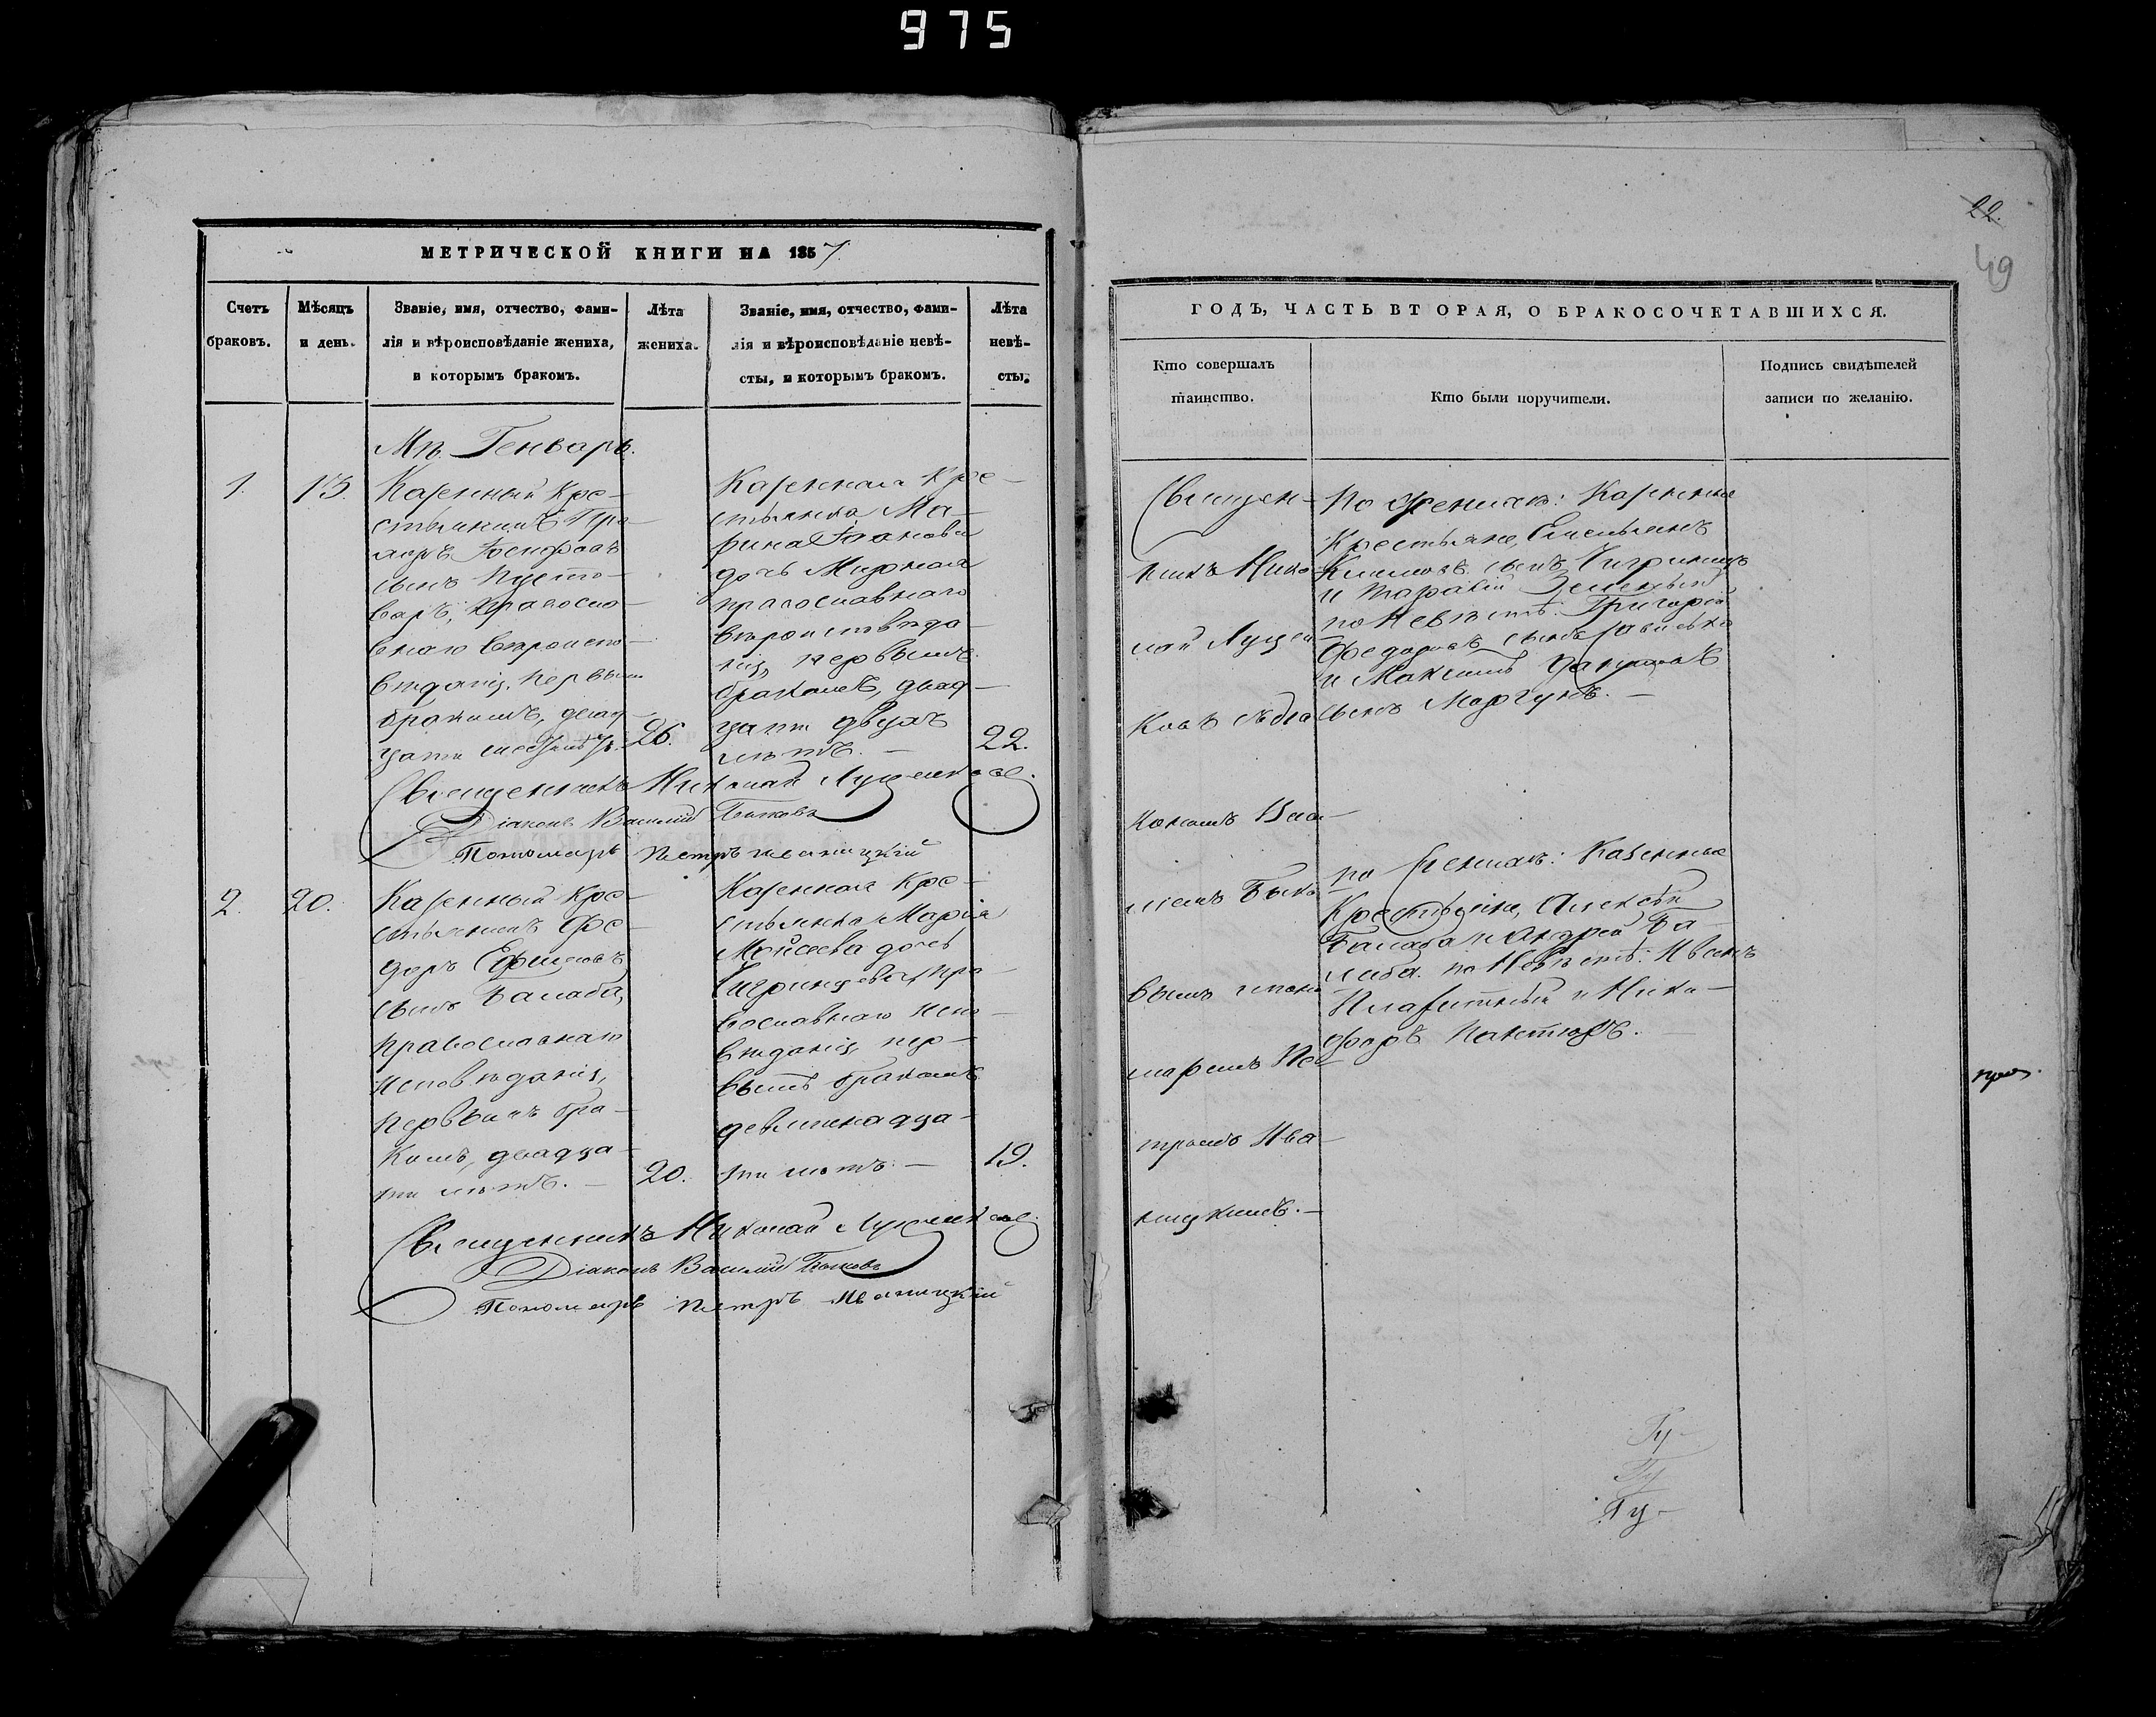 975
МЕТРИЧЕСКОЙ КНИГИ НА 1857
Счетъ браковъ.
Мѣсяцъ и день.
Званіе, имя, отчество, фами-
лія и вѣроисповѣданіе жениха,
и которымъ бракомъ.
Лѣта
жениха.
Званіе, имя, отчество, фами-
лія и вѣроисповѣданіе невѣ-
сты, и которымъ бракомъ.
Лѣта
невѣ-
сты.
Мц. Генварь.
1.
13.
Казенный Кре-
стьянинъ
Іосифовъ
сынъ Пусто-
варъ, Православ-
внаго вѣроиспо-
вѣданія, первымъ
бракомъ, двад-
цати шести лѣтъ
26.
Казенная Кре-
стьянка Ма-
рина
дочь
православнаго
вѣроисповѣда-
нія, первымъ
бракомъ, двад-
цати двухъ
лѣтъ. —
22.
Священникъ Николай Лущенковъ
Діаконъ Василій Быковъ
Пономарь Петръ
2.
20.
Казенный Кре-
стьянинъ Фе-
доръ Ефимовъ
сынъ Балаба,
православнаго
исповѣданія,
первымъ бра-
комъ, двадца-
ти лѣтъ. —
20.
Казенная Кре-
стьянка Марія
Мойсеева дочь
Чигринцева, пра-
вославнаго испо-
вѣданія, пер-
вымъ бракомъ
девятнадца-
ти лѣтъ. —
19.
Священникъ Николай Лущенковъ
Діаконъ Василій Быковъ
Пономарь Петръ
22.
49
ГОДЪ, ЧАСТЬ ВТОРАЯ, О БРАКОСОЧЕТАВШИХСЯ.
Кто совершалъ
таинство.
Кто были поручители.
Подпись свидѣтелей
записи по желанію.
Священ-
никъ Нико-
лай Лущен-
ковъ съ діа-
кономъ Васи-
ліемъ Быко-
вымъ и поно-
маремъ Пе-
тромъ Ива-
ницкимъ. —
По женихѣ: Казенные
Крестьяне, Емельянъ
Климовъ сынъ Чигринецъ
и Тарасій
по Невѣстѣ: Григорій
Федоровъ сынъ
и Максимъ
сынъ Моргунъ. —
По Женихѣ: Казенные
Крестьяне, Алексѣй
Балаба и Андрей Ба-
лаба. по Невѣстѣ: Иванъ
и Ники-
форъ
Гу-
Гу
Гу-